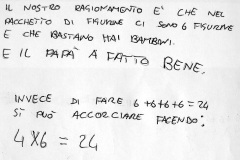 IL NOSTRO RAGIONAMENTO E' CHE NEL
PACCHETTO DI FIGURINE CI SONO 6 FIGURINE
E CHE BASTANO HAI BAMBINI.
E IL PAPÀ A FATTO BENE.
INVECE DI FARE 6+6+6+6=24
SI PUÒ ACCORCIARE FACENDO:
4X6=24